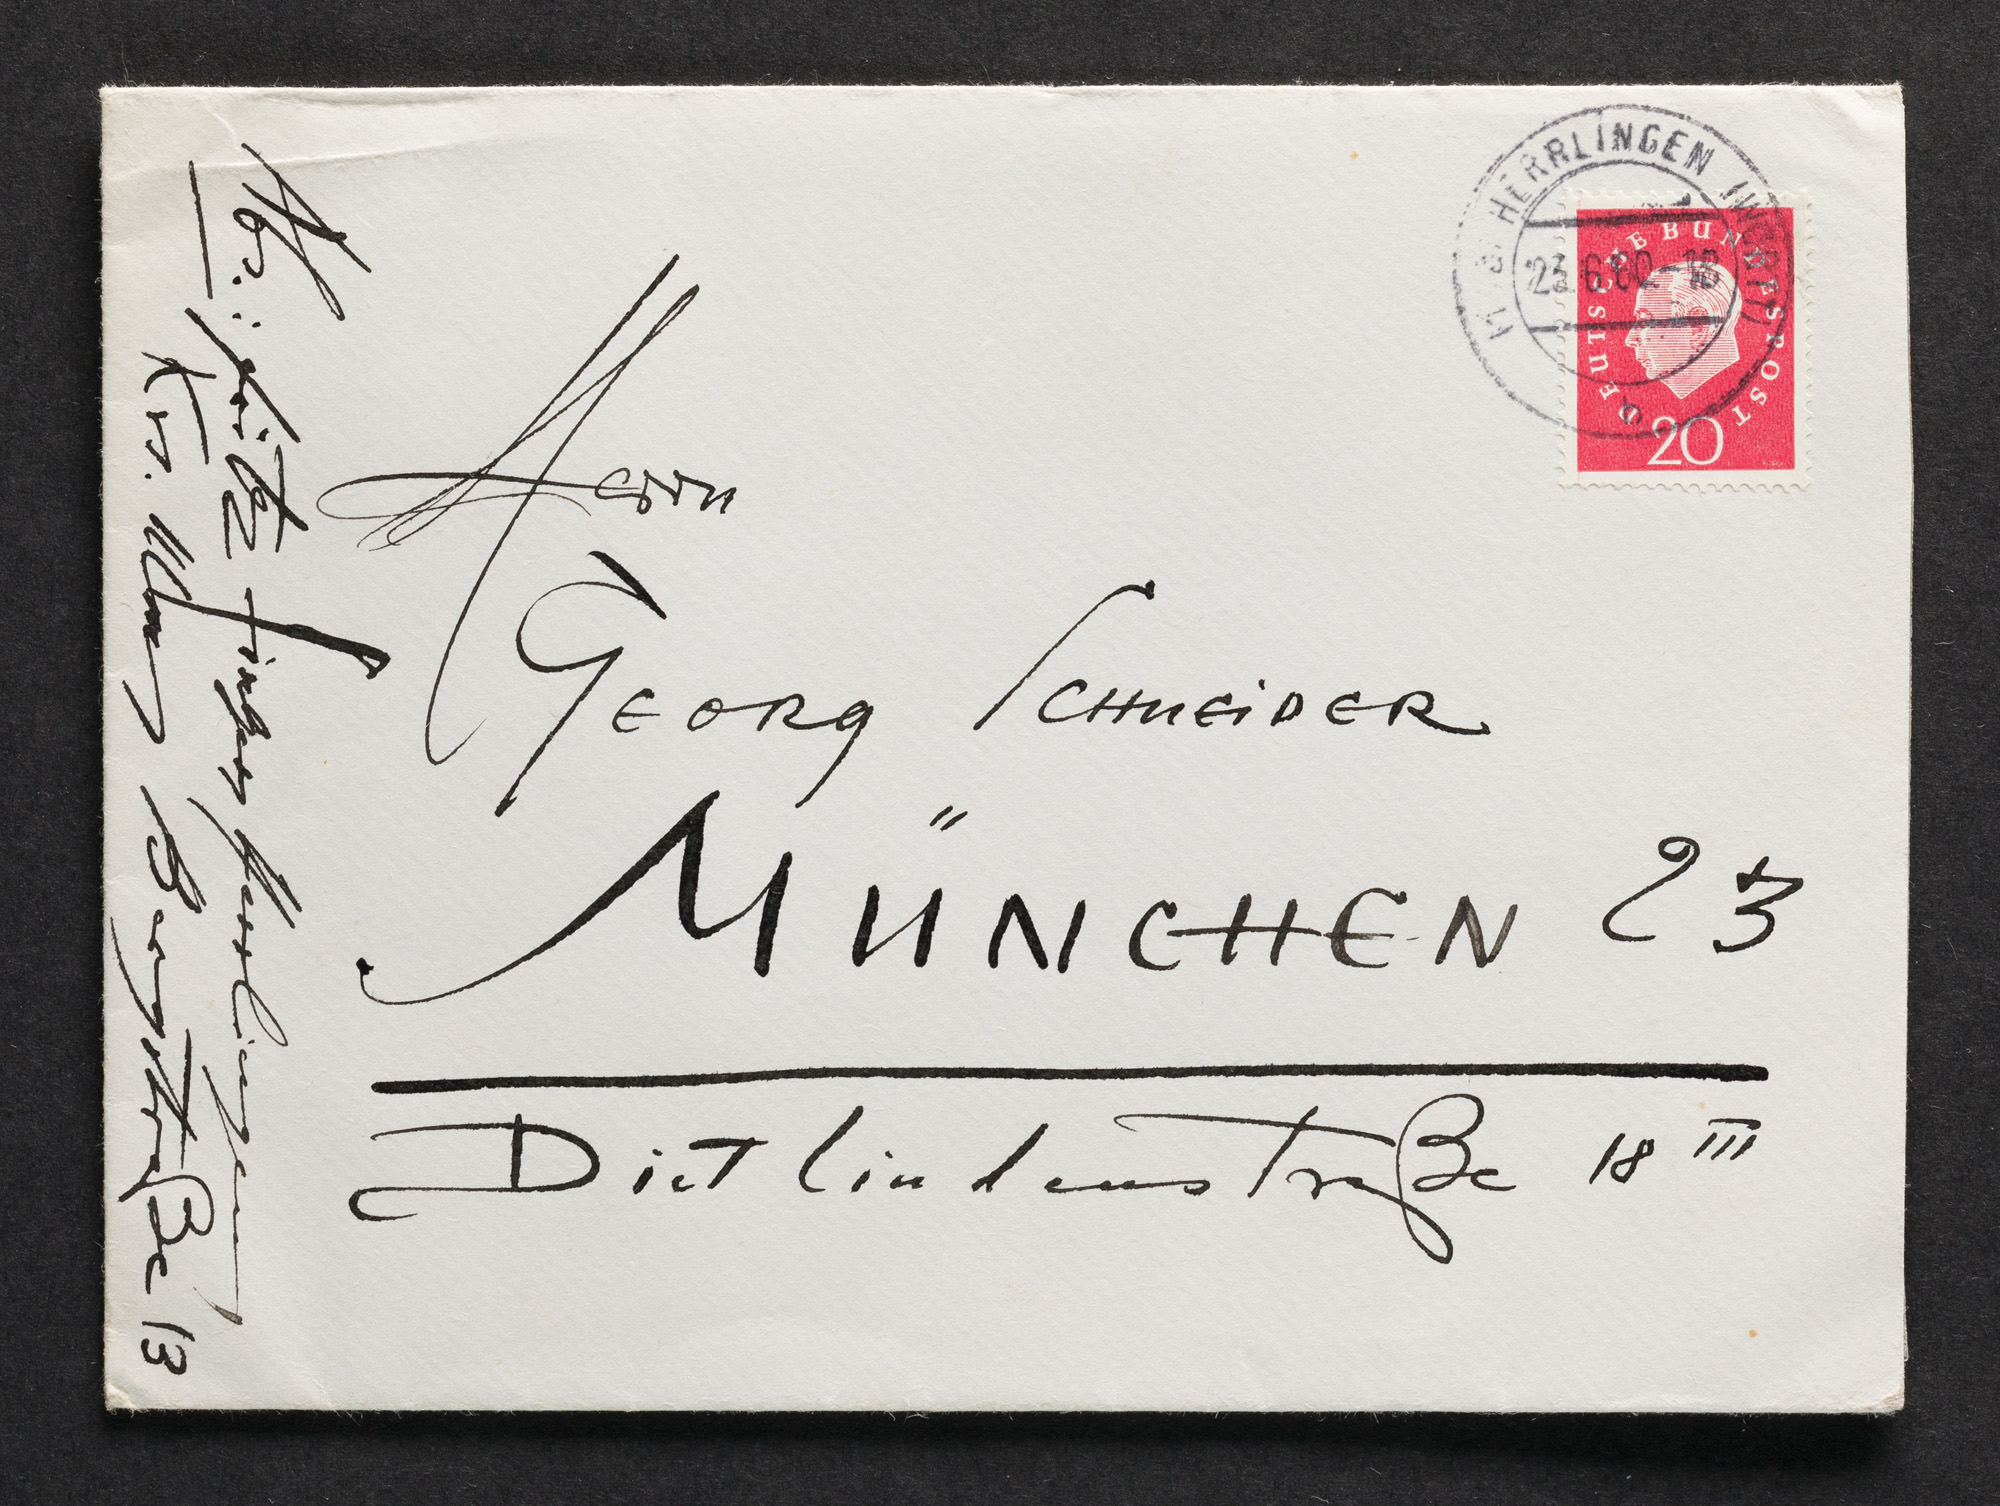 Herrn
Georg Schneider
MÜNCHEN 23
Dietlindenstraße 18 III
Abs.: Fritz Finger Herrlingen
Krs. Ulm Bergstraße 13
HERRLINGEN (WÜRTT)
23.6.60-18
a
DEUTSCHE BUNDESPOST
20